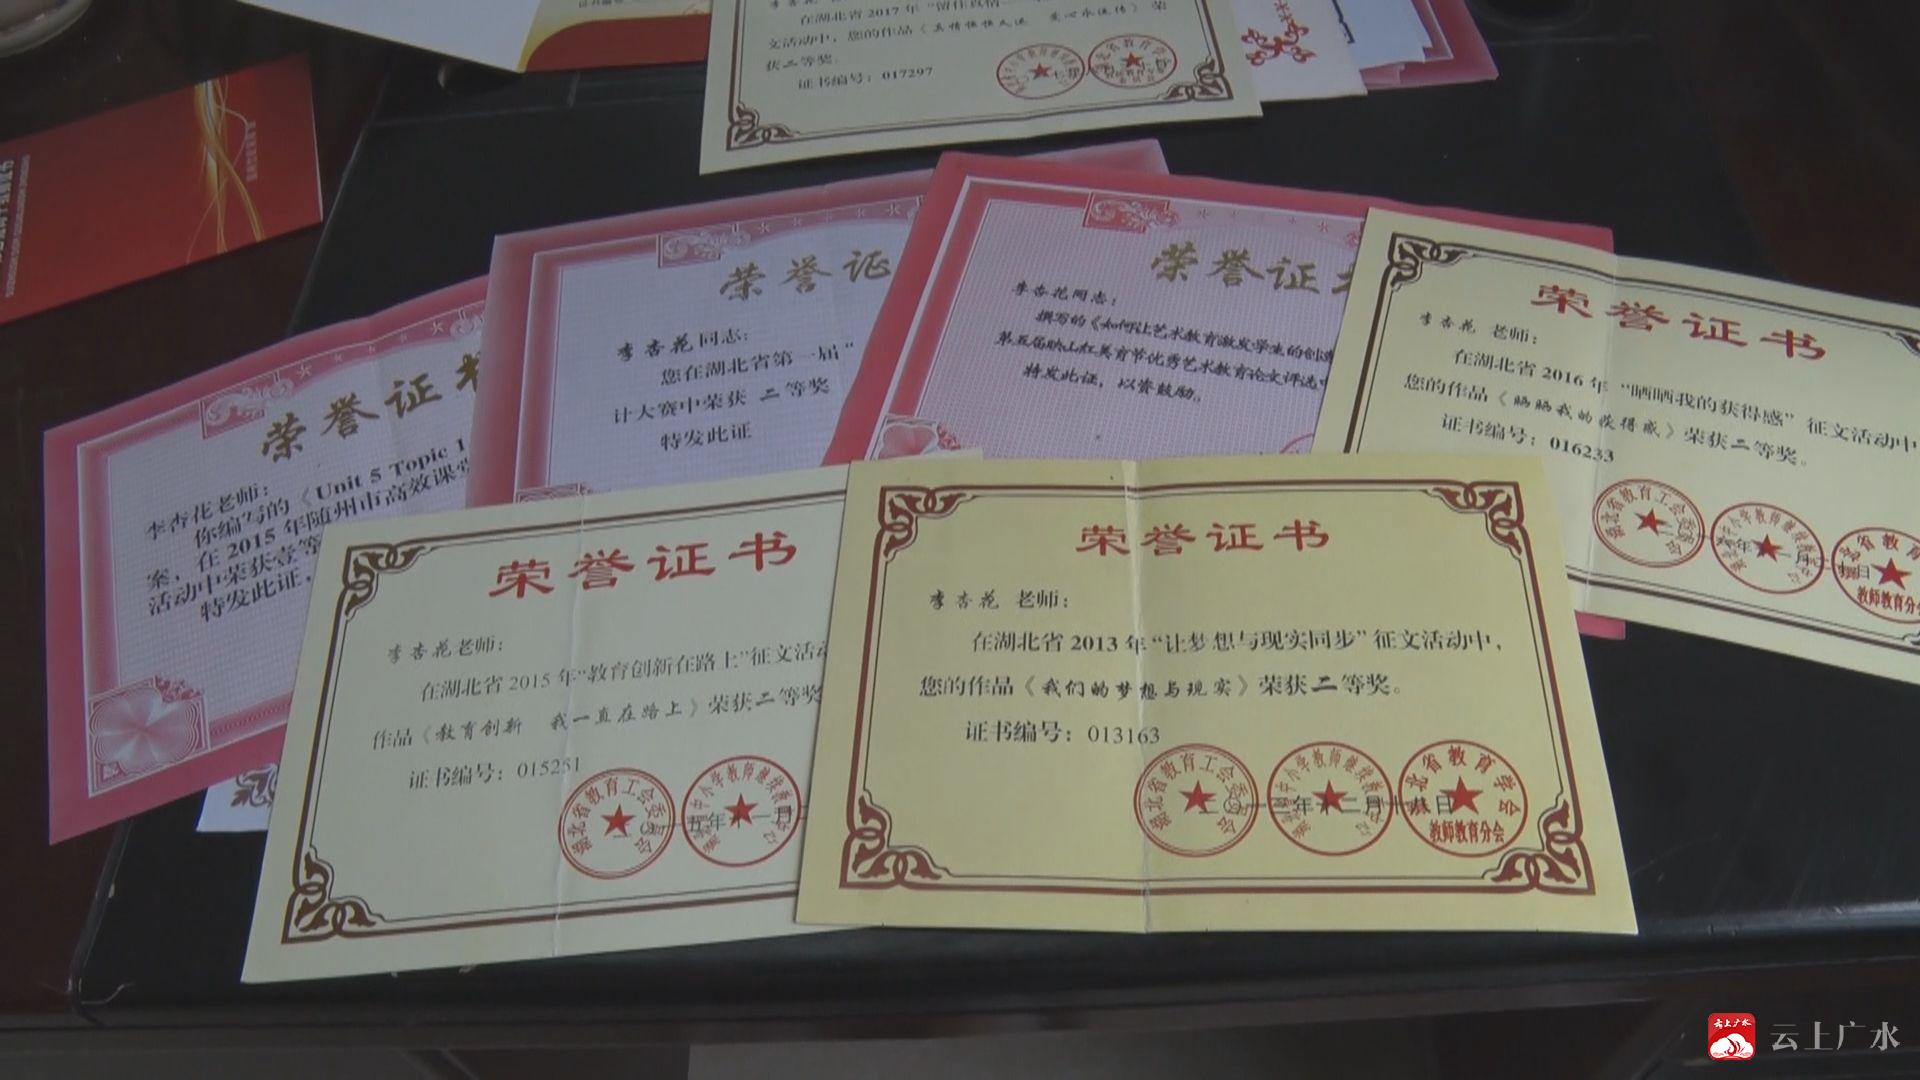 在湖北省2017年“留住真情
文活动中，您的作品《真情
获二等奖。
证书编号：017297
荣誉证书
李杏花老师：
你编写的《Unit 5 Topic 1
案，在2015年随州市高效课堂
活动中荣获壹等
特发此证，
荣誉证
李杏花同志：
您在湖北省第一届“
计大赛中荣获 二等奖
特发此证
荣誉证
李杏花同志：
撰写的《如何让艺术教育激发学生的创造
第五届映山红美育节优秀艺术教育论文评选中
特发此证，以资鼓励。
荣誉证书
李杏花 老师：
在湖北省2016年“晒晒我的获得感”征文活动中
您的作品《晒晒我的获得感》荣获二等奖。
证书编号：016233
湖北省教育工会委员会
教师教育分会
荣誉证书
李杏花老师：
在湖北省2015年“教育创新在路上”征文活动
作品《教育创新 我一直在路上》荣获二等奖
证书编号：015251
湖北省教育工会委员会
荣誉证书
李杏花 老师：
在湖北省2013年“让梦想与现实同步”征文活动中，
您的作品《我们的梦想与现实》荣获二等奖。
证书编号：013163
湖北省教育工会委员会
湖北省教育学会
教师教育分会
云上广水
云上广水